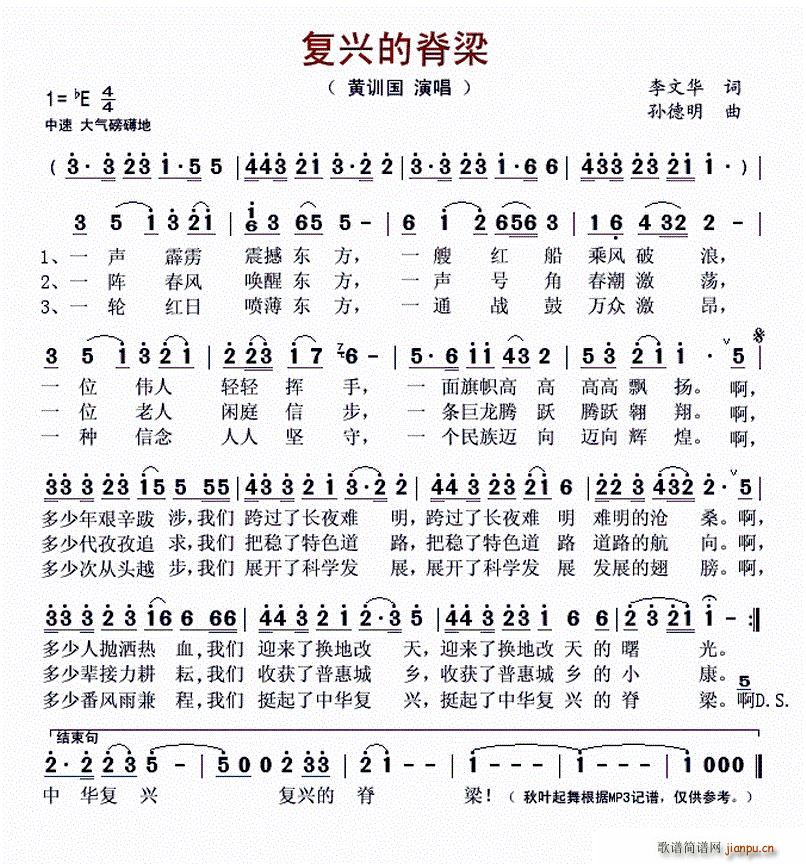 复兴的脊梁
（ 黄训国 演唱 ）
李文华 词
1=♭E 4/4
孙德明 曲
中速 大气磅礴地
( 3·3 23 1·5 5 | 443 21 3·2 2 | 3·3 23 1·6 6 | 433 23 21 1· ) |
3 5 1 3 21 | 1/6 3 65 5 - | 6 1 2 656 3 | 1 6 4 32 2 - |
1、一 声 霹雳 震撼 东 方， 一 艘 红 船 乘风 破 浪，
2、一 阵 春风 唤醒 东 方， 一 声 号 角 春潮 激 荡，
3、一 轮 红日 喷薄 东 方， 一 通 战 鼓 万众 激 昂，
3 5 1 3 21 | 2 23 1 7 6 - | 5·6 11 43 2 | 53 21 1 - 5 |
一 位 伟人 轻轻 挥 手， 一 面旗帜高 高 高高 飘 扬。 啊，
一 位 老人 闲庭 信 步， 一 条巨龙腾 跃 腾跃 翱 翔。 啊，
一 种 信念 人人 坚 守， 一 个民族迈 向 迈向 辉 煌。 啊，
33 3 23 15 5 55 | 43 3 21 3·2 2 | 44 3 23 21 6 | 22 3 432 2· 5 |
多少年艰辛跋 涉，我们 跨过了长夜难 明，跨过了长夜难 明 难明的沧 桑。啊，
多少代孜孜追 求，我们 把稳了特色道 路，把稳了特色道 路 道路的航 向。啊，
多少次从头越 步，我们 展开了科学发 展，展开了科学发 展 发展的翅 膀。啊，
33 3 23 16 6 66 | 44 3 21 2·3 5 | 44 3 23 1 6 6 | 2 3 21 1 - :|
多少人抛洒热 血，我们 迎来了换地改 天，迎来了换地改 天 的 曙 光。
多少辈接力耕 耘，我们 收获了普惠城 乡，收获了普惠城 乡 的 小 康。 5
多少番风雨兼 程，我们 挺起了中华复 兴，挺起了中华复 兴 的 脊 梁。啊D.S.
结束句
2·2 23 5 - | 5 0 0 2 33 | 2 1 1 - | 1 - - - | 1 0 0 0 ‖
中 华复 兴 复兴的 脊 梁！ （ 秋叶起舞根据MP3记谱，仅供参考。）
歌谱简谱网
jianpu.cn